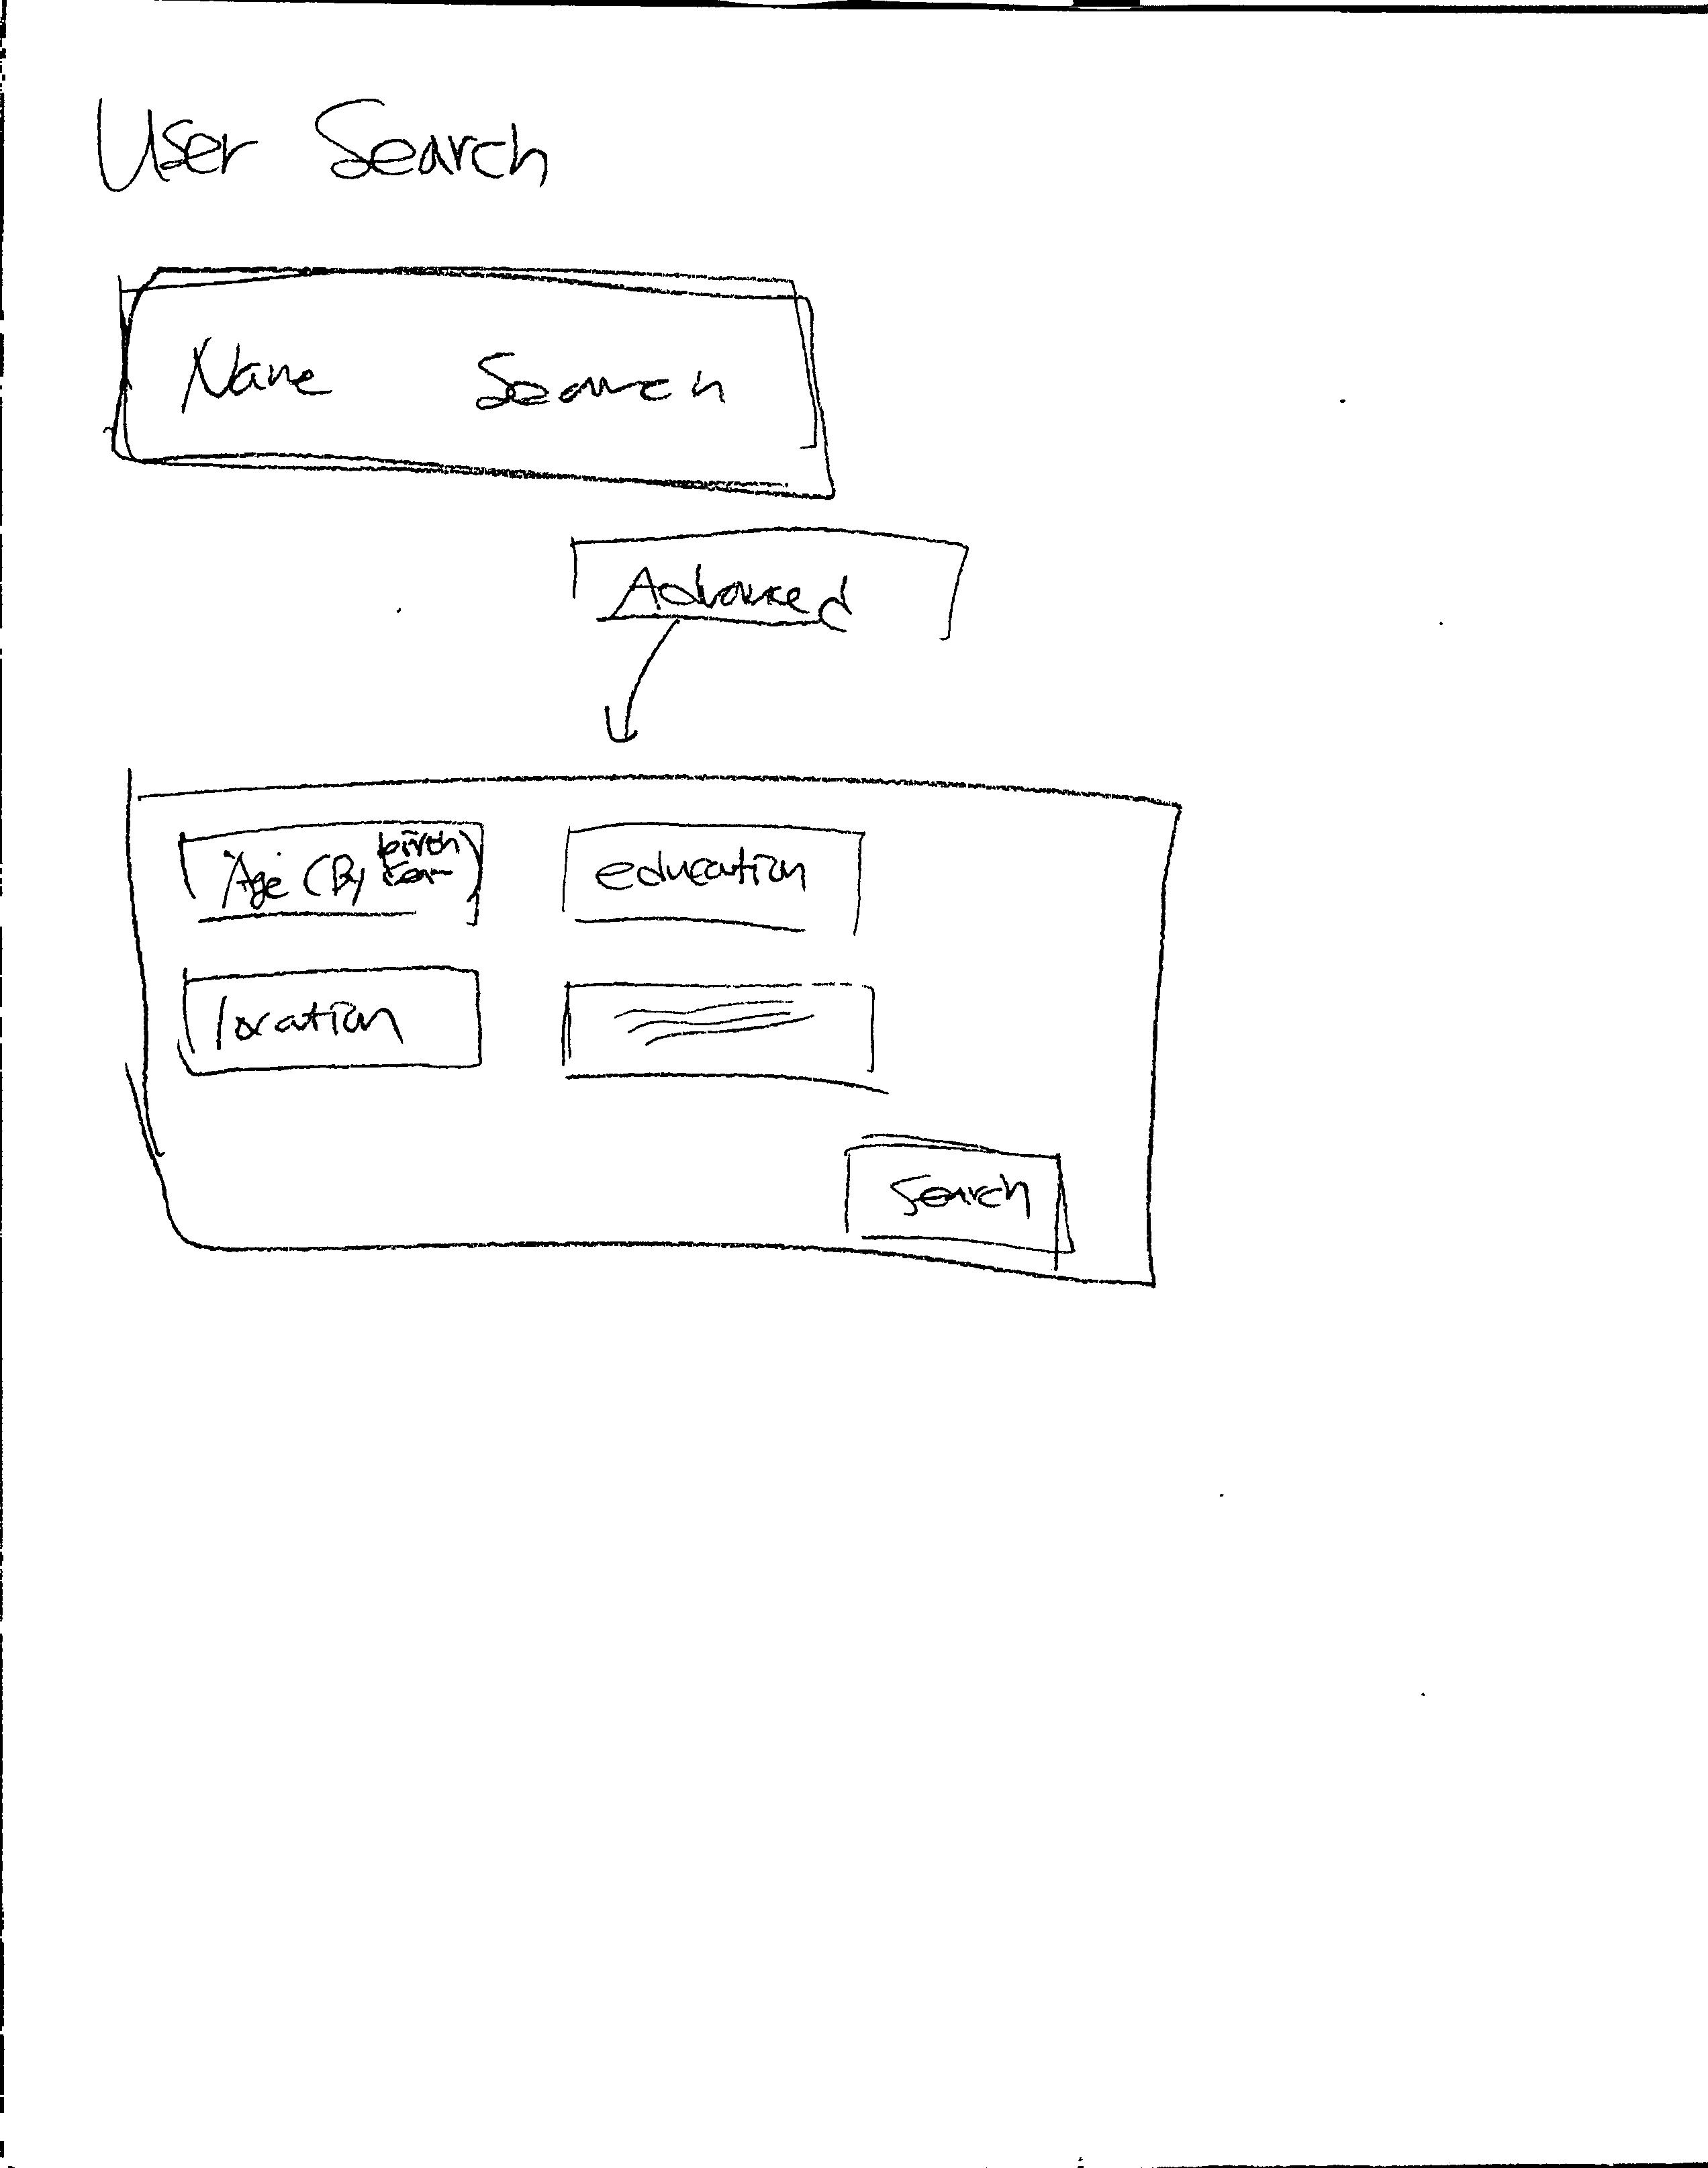 User Search
Name Search
Advanced
Age (By birth year)
education
location
Search